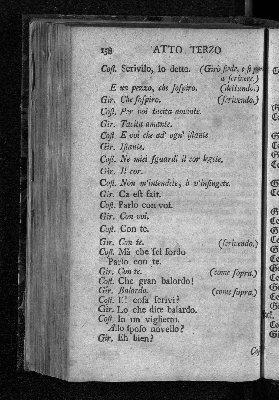 158 ATTO TERZO
Cost. Scrivilo, io detto. (Girò siede, e si pone
a scrivere.)
E un pezzo, che sospiro. (dettando.)
Gir. Che sospiro. (scrivendo.)
Cost. Per voi tacita amante.
Gir. Tacita amante.
Cost. E voi che ad' ogn' istante
Gir. Istante.
Cost. Ne miei sguardi il cor legete,
Gir. Il cor.
Cost. Non m'intendete, ò v'infingete.
Gir. Ca est fait.
Cost. Parlo con voi.
Gir. Con voi.
Cost. Con te.
Gir. Con te. (scrivendo.)
Cost. Mà che sei sordo
Parlo con te.
Gir. Con te. (come sopra.)
Cost. Che gran balordo!
Gir. Balordo. (come sopra.)
Cost. E! cosa scrivi?
Gir. Lo che dite balardo.
Cost. In un viglietto.
Allo sposo novello?
Gir. Eh bien?